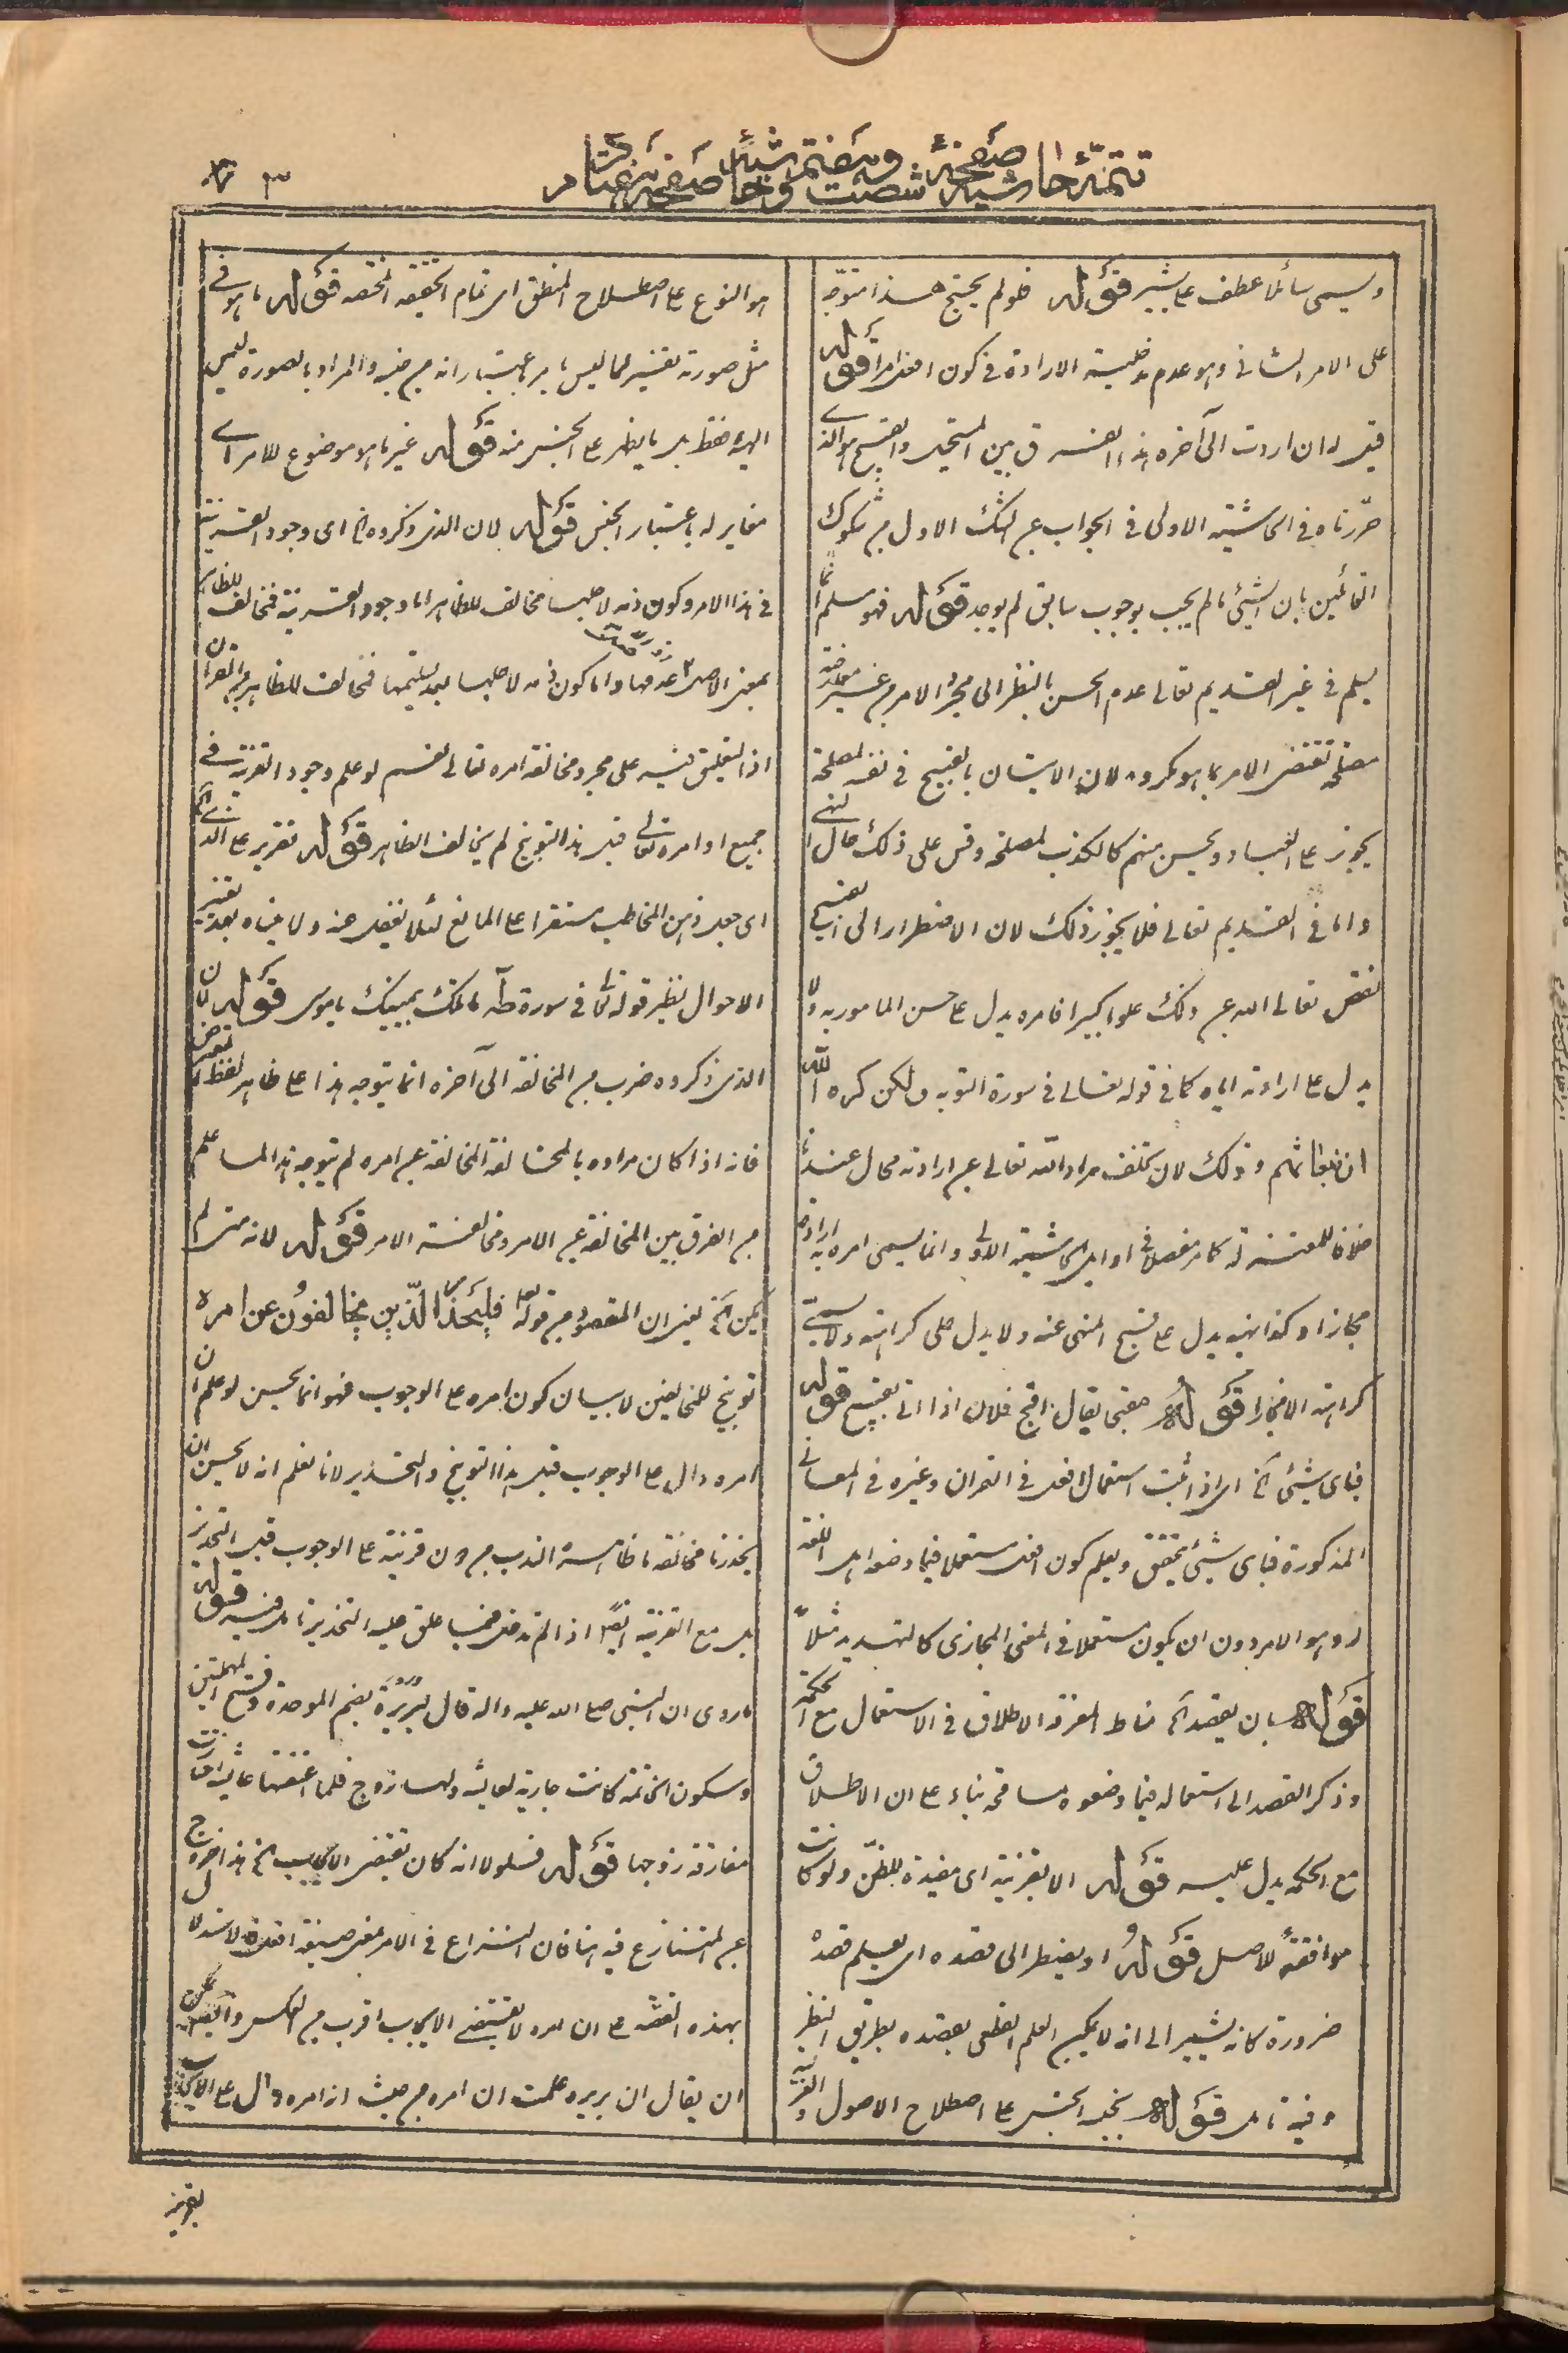 تتمّهٔ حاشیه صفحهٔ شصت و هفتم و حاشیهٔ صفحهٔ
ویسمی سائلا عطف علی یشیر قوله فلو لم یحتج هذا متوجّه
علی الامر الثانی وهو عدم مدخلیة الارادة فی کون افعل امرا قوله
قیل له ان اردت الی آخره هذا الفرق بین المستحیل والقبیح هو الذی
حرّرناه فی الحاشیة الاولی فی الجواب عن الشک الاول من شکوک
القائلین بان الشیء ما لم یجب بوجوب سابق لم یوجد قوله فهو مسلم انما
یسلم فی غیر القدیم تعالی عدم الحسن بالنظر الی مجرد الامر من غیر معارضة
مصلحة تقتضی الامر بما هو مکروه لان الاتیان بالقبیح فی نفسه لمصلحة
یجوز علی العباد ویحسن منهم کالکذب لمصلحة وقس علی ذلک حال النهی
واما فی القدیم تعالی فلا یجوز ذلک لان الاضطرار الی القبیح
نقص تعالی الله عن ذلک علوا کبیرا فامره یدل علی حسن المامور به ولا
یدل علی ارادته ایاه کما فی قوله تعالی فی سورة التوبه ولکن کره الله
انبعاثهم وذلک لان تخلف مراد الله تعالی عن ارادته محال عندنا
خلافا للمعتزلة کما مر مفصلا فی اوایل الحاشیة الاولی وانما یسمی امره به ارادة
مجازا وکذا نهیه یدل علی قبح المنهی عنه ولا یدل علی کراهته ولا یسمّی
کراهته الا مجازا قوله مقبحا یقال اقبح فلان اذا اتی بقبیح قوله
فبای شیء الخ ای اذا ثبت استعمال افعل فی القران وغیره فی المعانی
المذکورة فبای شیء یتحقق ویعلم کون افعل مستعملا فیما وضعه اهل اللغة
له وهو الامر دون ان یکون مستعملا فی المعنی المجازی کالتهدید مثلاً
قوله بان یقصد الخ مناط المعرفة الاطلاق فی الاستعمال مع الحکمة
وذکر القصد الی استعماله فیما وضعوه مسامحة بناء علی ان الاطلاق
مع الحکمة یدل علیه قوله الا بقرینة ای مفیدة للظنّ ولو کانت
موافقة للاصل قوله او یضطر الی قصده ای یعلم قصده
ضرورة کانه یشیر الی انه لا یمکن العلم القطعی بقصده بطریق النظر
وفیه تامل قوله بحسب الجنس علی اصطلاح الاصول والعربیة
هو النوع علی اصطلاح المنطق ای تمام الحقیقة المختصة قوله ما هو فی
مثل صورته تفسیر لما لیس بامر باعتبار انه من جنسه والمراد بالصورة لیس
الهیئة فقط بل ما یظهر علی الحس منه قوله غیر ما هو موضوع للامر ای
مغایر له باعتبار الجنس قوله لان الذی ذکروه الخ ای وجود القرینة
فی هذا الامر وکون ذمه لاجلها مخالف للظاهر اما وجود القرینة فمخالف للظاهر
بمعنی الاصل عدمها واما کون ذمه لاجلها بعد تسلیمها فمخالف للظاهر من القرآن
اذ التعلیق فیه علی مجرد مخالفة امره تعالی نعم لو علم وجود القرینة فی
جمیع اوامره تعالی قبل هذا التوبیخ لم یخالف الظاهر قوله تقریر علی الذی الخ
ای جعل ذهن المخاطب مستقرا علی المانع لئلا یغفل عنه ولا ینساه بعد تغییر
الاحوال نظیر قوله تعالی فی سورة طه ما تلک بیمینک یا موسی قوله لان
الذی ذکروه ضرب من المخالفة الی آخره انما یتوجه هذا علی ظاهر لفظ المعترض
فانه اذا کان مراده بالمخالفة المخالفة عن امره لم یتوجه هذا لما علم
من الفرق بین المخالفة عن الامر ومخالفة الامر قوله لانه متی لم
یکن الخ یعنی ان المقصود من قوله تعالی فلیحذر الّذین یخالفون عن امره
توبیخ للمخالفین لا بیان کون امره علی الوجوب فهو انما یحسن لو علم ان
امره دال علی الوجوب قبل هذا التوبیخ والتحذیر لانا نعلم انه لا یحسن ان
یحذرنا مخالفة ما ظاهره الندب من دون قرینة علی الوجوب قبل التحذیر
بل مع القرینة ایضا اذا لم تدخل فیما علق علیه التحذیر تامل فیه قوله
ما روی ان النبی صلی الله علیه واله قال لبریرة بضم الموحدة وفتح المهملتین
وسکون الخاتمة کانت جاریة لعایشه ولها زوج فلما اعتقتها عایشه اختارت
مفارقة زوجها قوله فلولا انه کان یقتضی الایجاب الخ هذا خروج
عن المتنازع فیه اذا کان النزاع فی الامر بمعنی صیغة افعل والاستدلال
بهذه القصة علی ان امره لا یقتضی الایجاب اقرب من العکس وایضا یمکن
ان یقال ان بریره علمت ان امره من حیث انه امره دال علی الایجاب
بقرینة